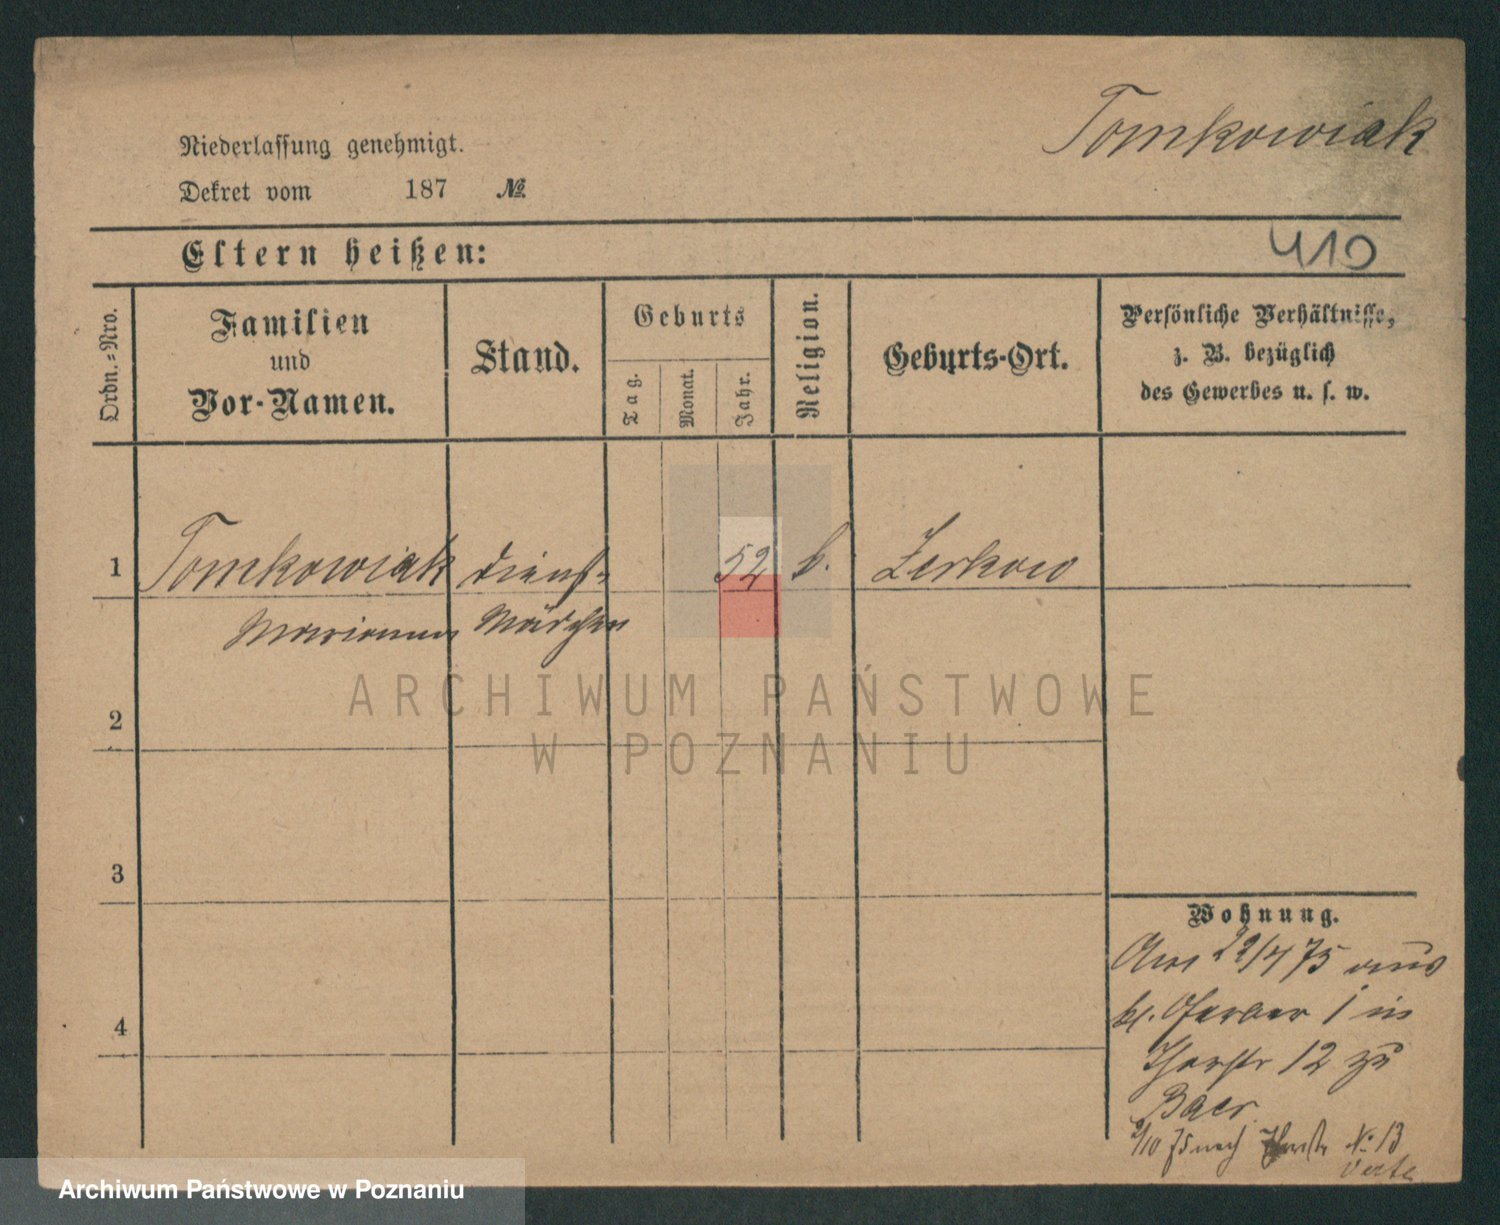 Tomkowiak
Niederlassung genehmigt.
Dekret vom 187 №
Eltern heißen:
410
Ordn.=Nro.
Familien
und
Vor-Namen.
Stand.
Geburts
Tag.
Monat.
Jahr.
Religion.
Geburts-Ort.
Persönliche Verhältnisse,
z. B. bezüglich
des Gewerbes u. s. w.
1 Tomkowiak Dienst= 52 k. Zerkow
Marianna Mädchen
2
3
4
ARCHIWUM PAŃSTWOWE
W POZNANIU
Wohnung.
Am 22/4 75 aus
kl. Gerber 1 in
Thorstr 12 zu
Baer.
2/10 75 nach № 13
Verte
Archiwum Państwowe w Poznaniu